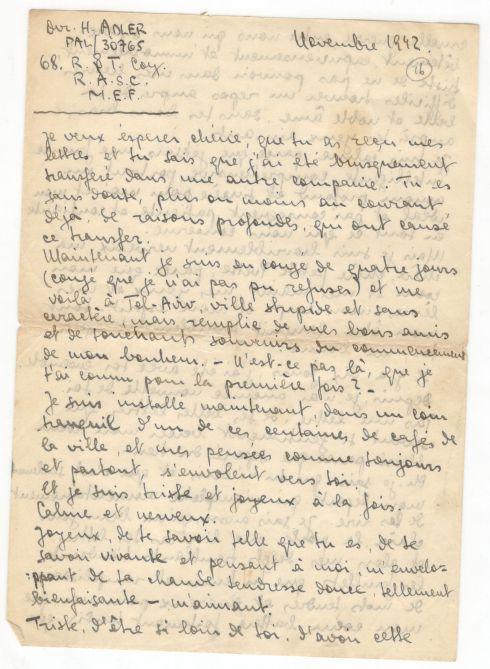 Dvr. H. ADLER
PAL/30765
68. R. & T. Coy.
R.A.S.C.
M.E.F.
Novembre 1942.
16
Je veux éspérer cherie que tu as reçu mes
lettres et tu sais que j'ai été brusquement
transferé dans une autre compagnie. Tu es
sans doute, plus ou moins au courant
déjà de raisons profondes, qui ont causé
ce transfer.
Maintenant je suis au congé de quatre jours
(congé que je n'ai pas pu refuser) et me
voilà à Tel-Aviv, ville stupide et sans
caractère, mais remplie de mes bons amis
et de touchants souvenirs du commencement
de mon bonheur. – N'est-ce pas là, que je
t'ai connu pour la première fois? –
Je suis installé maintenant, dans un coin
tranquil d'un de ces centaines de cafés de
la ville, et mes pensées comme toujours
et partout s'envolent vers toi.
Et je suis triste et joyeux à la fois.
Calme et nerveux.
Joyeux, de te savoir telle que tu es, de te
savoir vivante et pensant à moi, m'envelo-
ppant de ta chaude tendresse douce, tellement
bienfaisante – m'aimant.
Triste, d'être si loin de toi, d'avoir cette